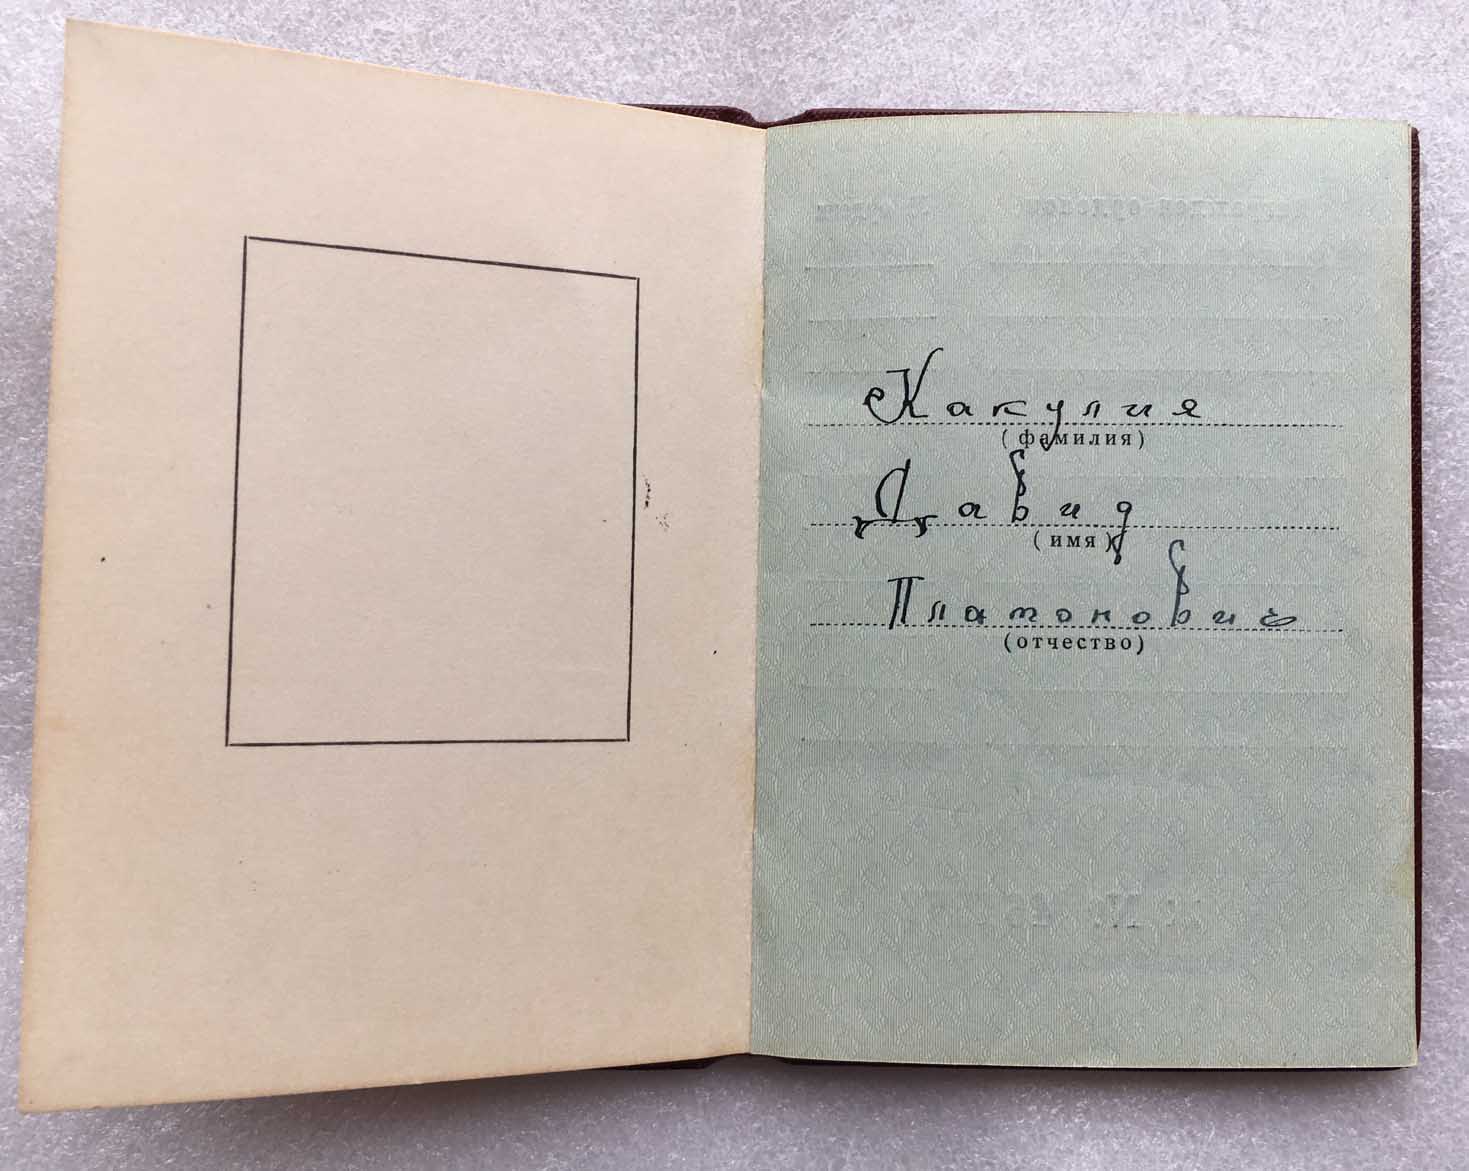 Какулия
(фамилия)
Давид
(имя)
Платонович
(отчество)